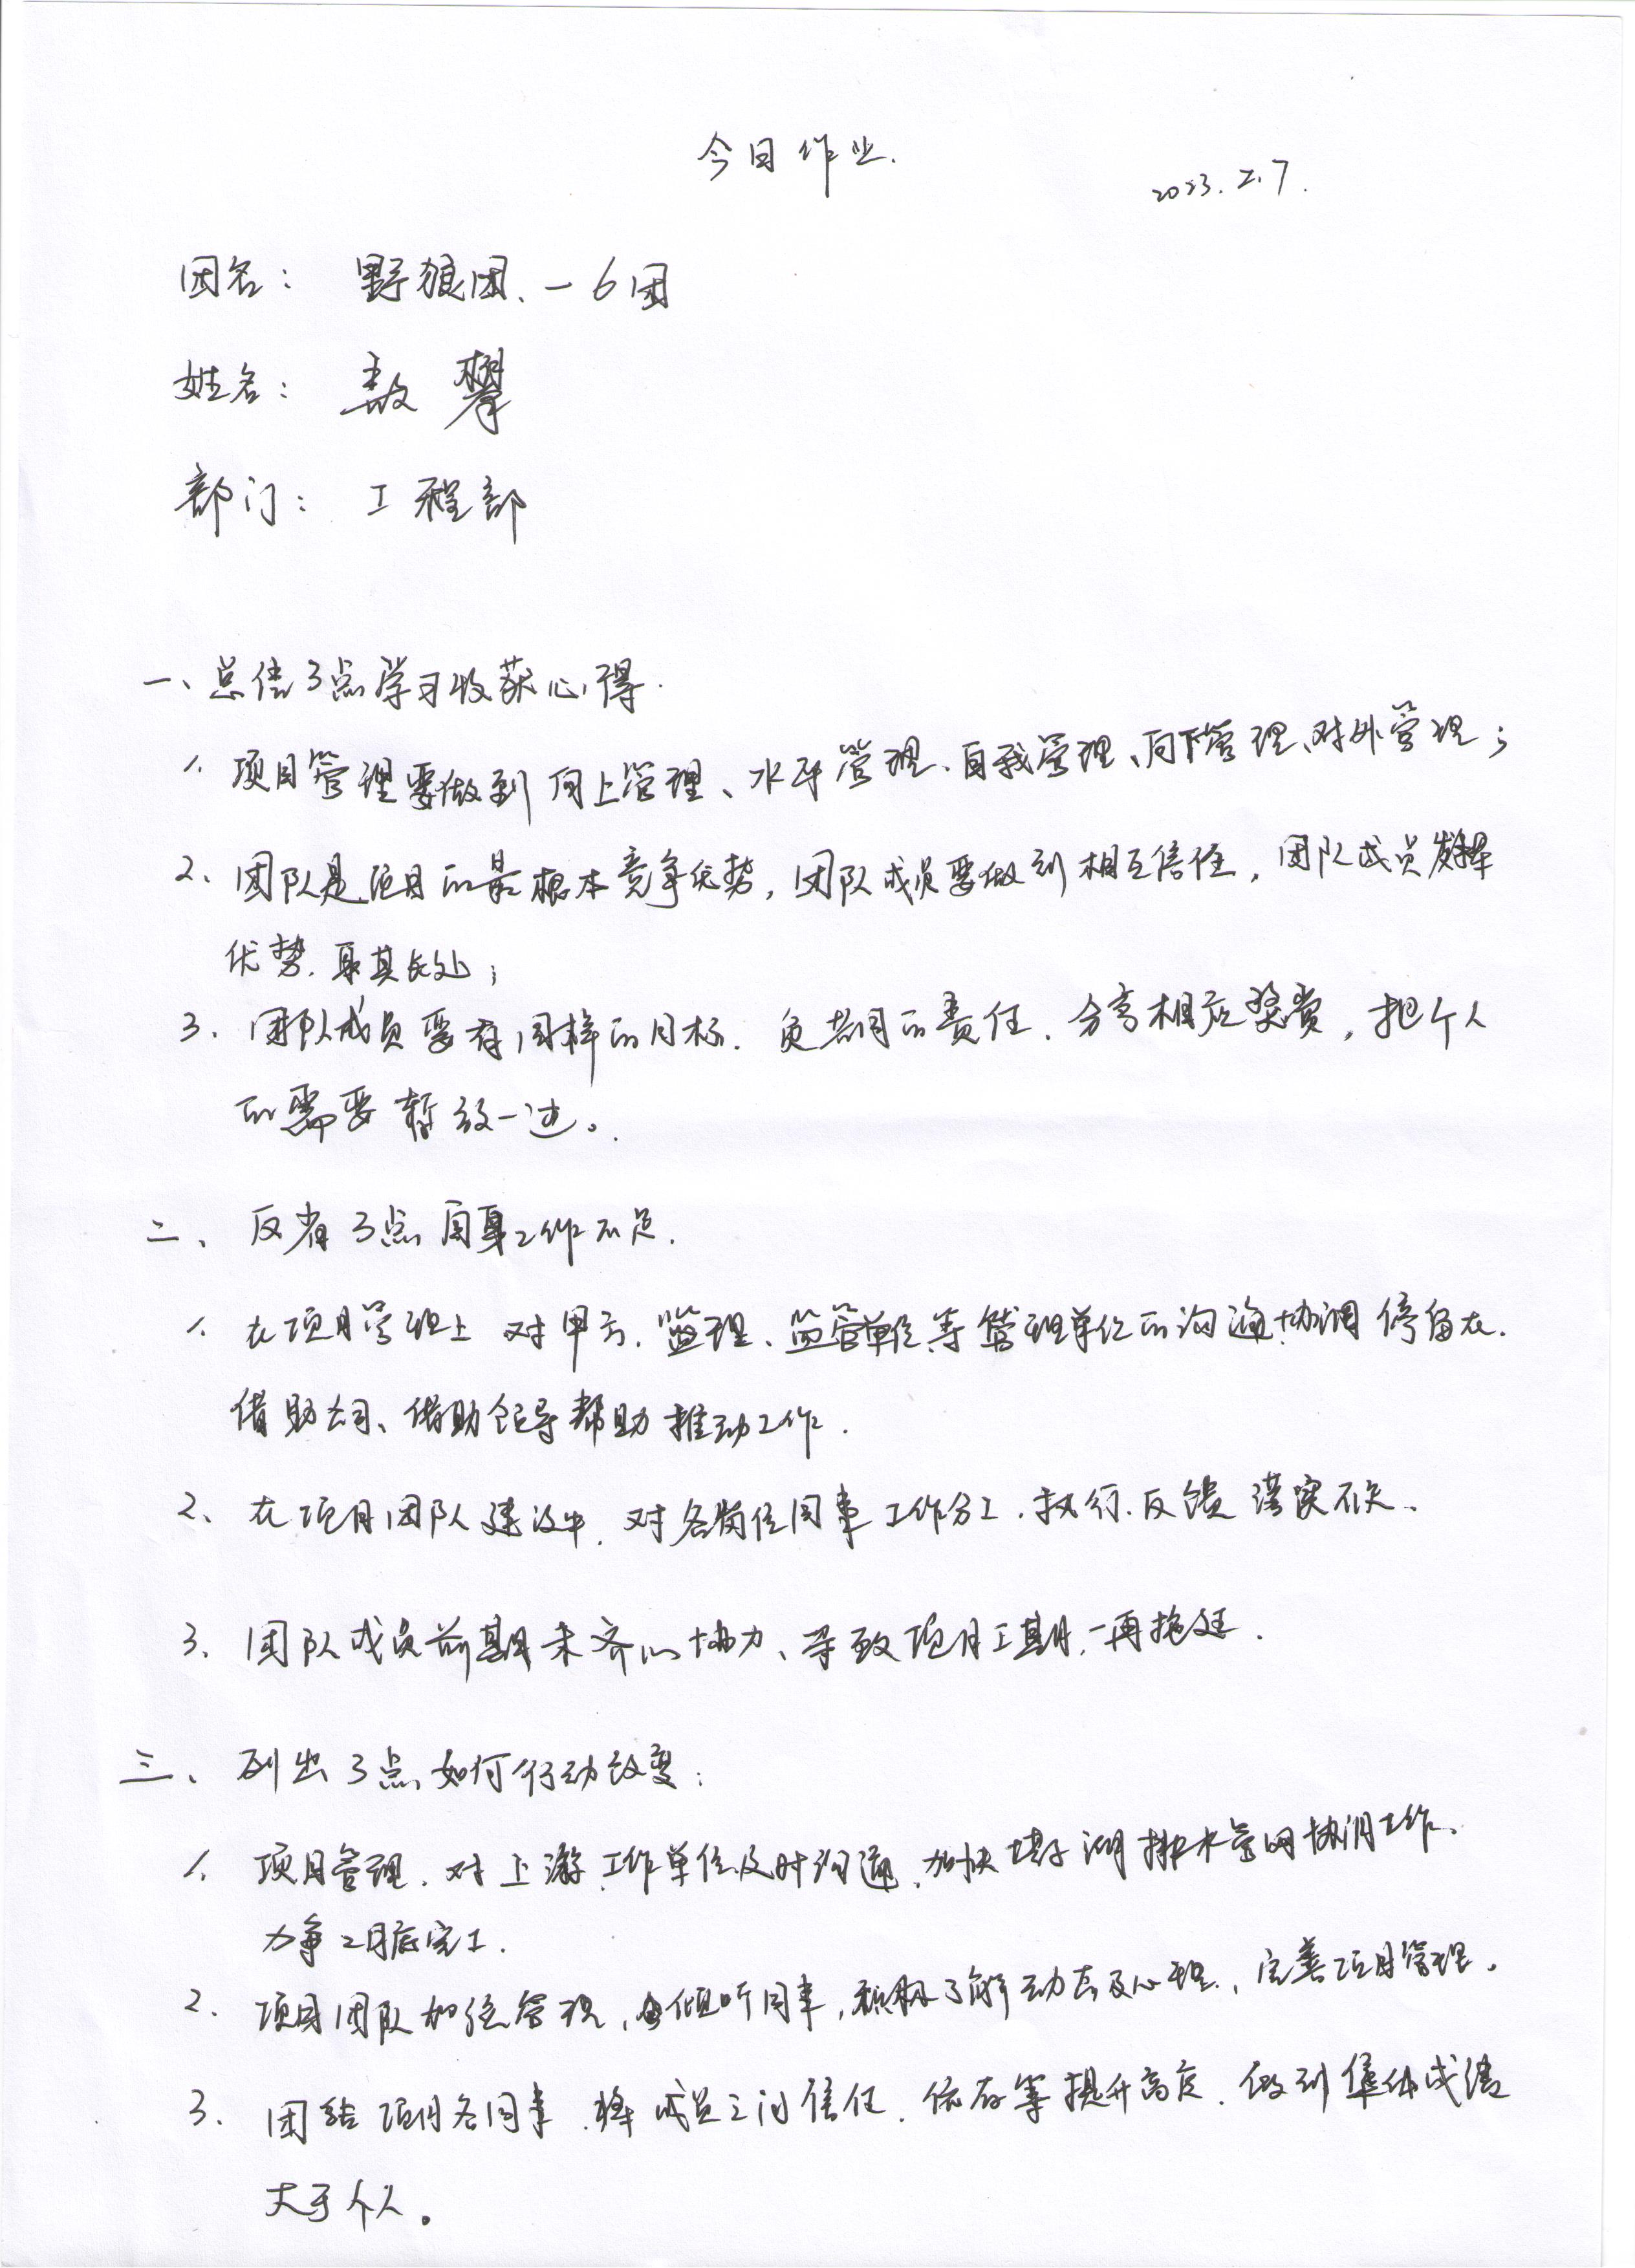 今日作业.
2023.2.7.
团名: 野狼团、一6团
姓名: 敖攀
部门: 工程部
一、总结3点学习收获心得.
1. 项目管理要做到向上管理、水平管理、自我管理、向下管理、对外管理;
2、团队是项目的最根本竞争优势,团队成员要做到相互信任,团队成员发挥
优势.取其长处;
3. 团队成员要有同样的目标.负共同的责任.分享相应奖赏,把个人
的需要暂放一边。
二、反省3点自身工作不足.
1. 在项目管理上 对甲方.监理、监管单位等管理单位的沟通协调停留在.
借助公司、借助领导帮助推动工作.
2、在项目团队建设中.对各岗位同事工作分工.执行.反馈落实不足.
3、团队成员前期未齐心协力、导致项目工期.一再拖延.
三、列出3点如何行动改变:
1. 项目管理.对上游工作单位及时沟通.加快 湖排水管网协调工作.
力争2月底完工.
2. 项目团队加强管理,倾听同事,积极了解动态及心理.,完善项目管理.
3. 团结项目各同事.将成员之间信任.依存等提升高度.做到集体成绩
大于个人。